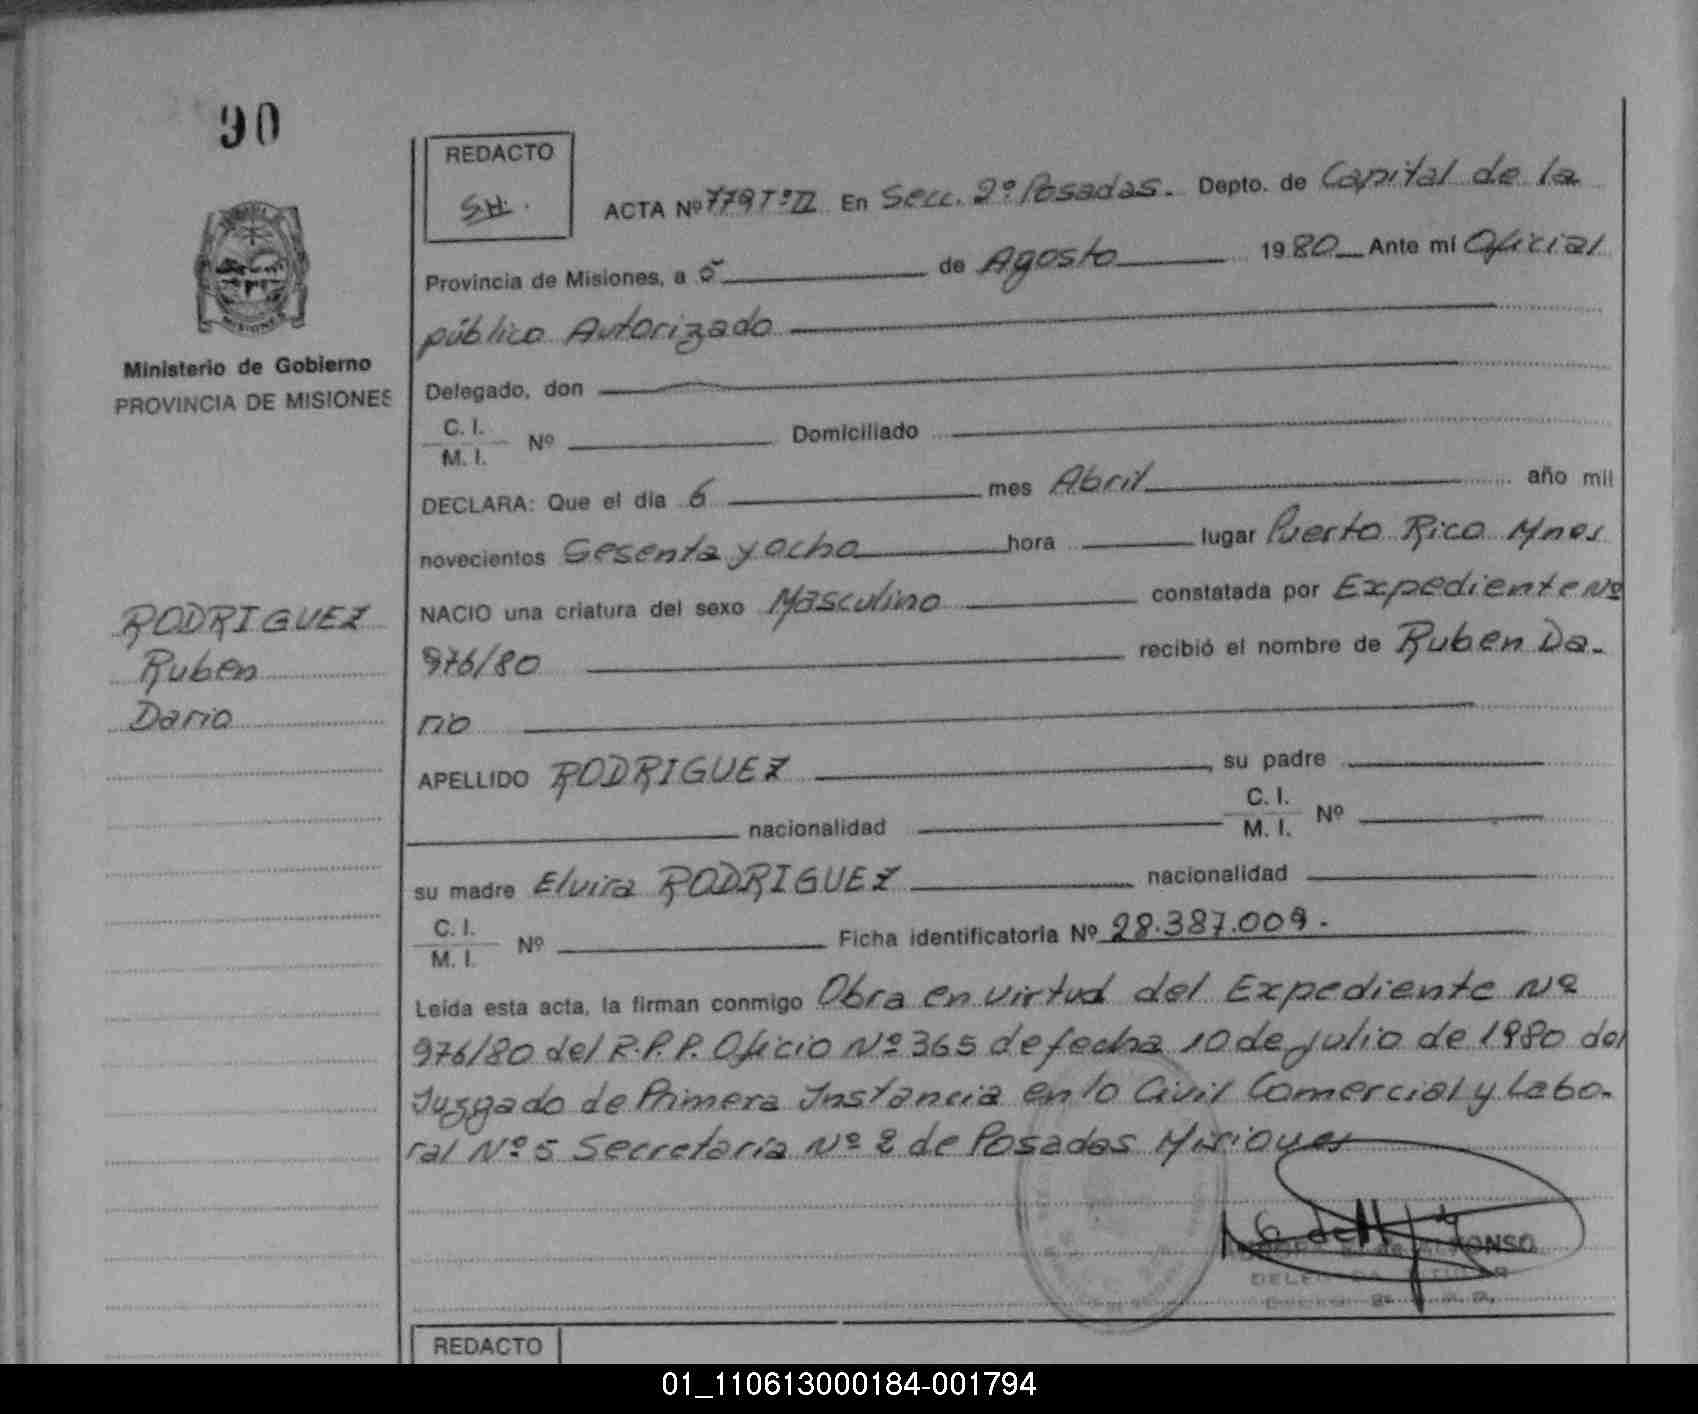 90
REDACTO
SH.
ACTA Nº 779 Tº II En Secc. 2º Posadas. Depto. de Capital de la
Provincia de Misiones, a 5 de Agosto 1980 Ante mí Oficial
público Autorizado
Delegado, don
C. I.
M. I. Nº Domiciliado
DECLARA: Que el día 6 mes Abril año mil
novecientos Sesenta y ocho hora lugar Puerto Rico Mnes
NACIO una criatura del sexo Masculino constatada por Expediente Nº
976/80 recibió el nombre de Ruben Da-
rio
APELLIDO RODRIGUEZ, su padre
nacionalidad C. I.
M. I. Nº
su madre Elvira RODRIGUEZ nacionalidad
C. I.
M. I. Nº Ficha identificatoria Nº 28.387.009.-
Leída esta acta, la firman conmigo Obra en virtud del Expediente Nº
976/80 del R.P.P. Oficio Nº 365 de fecha 10 de julio de 1980 del
Juzgado de Primera Instancia en lo Civil Comercial y Labo-
ral Nº 5 Secretaría Nº 2 de Posadas Misiones
REDACTO
MISIONES
Ministerio de Gobierno
PROVINCIA DE MISIONES
RODRIGUEZ
Ruben
Dario
01_110613000184-001794